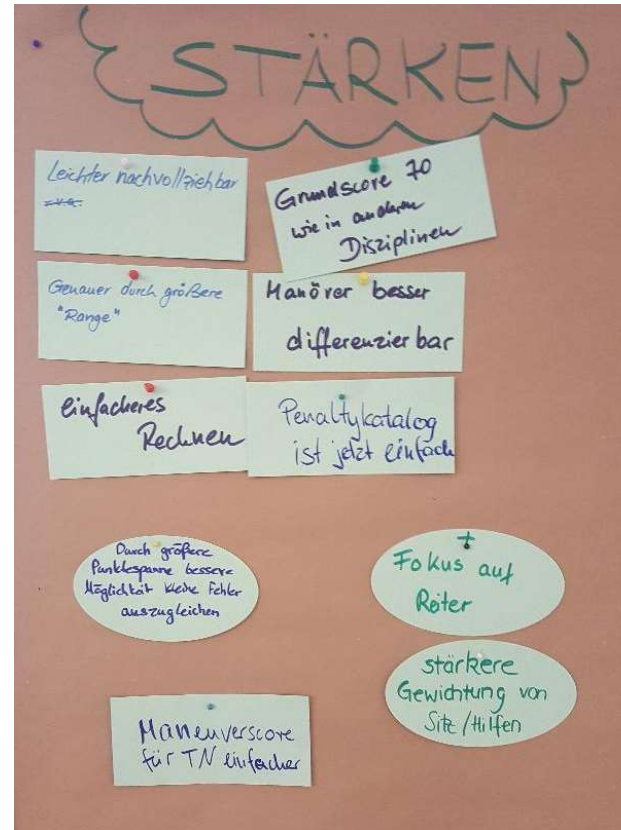 STÄRKEN
Leichter nachvollziehbar
Grundscore 70
wie in anderen
Disziplinen
Genauer durch größere
"Range"
Manöver besser
differenzierbar
einfacheres
Rechnen
Penaltykatalog
ist jetzt einfach
Durch größere
Punktespanne bessere
Möglichkeit kleine Fehler
auszugleichen
+
Fokus auf
Reiter
stärkere
Gewichtung von
Sitz/Hilfen
Maneuverscore
für TN einfacher